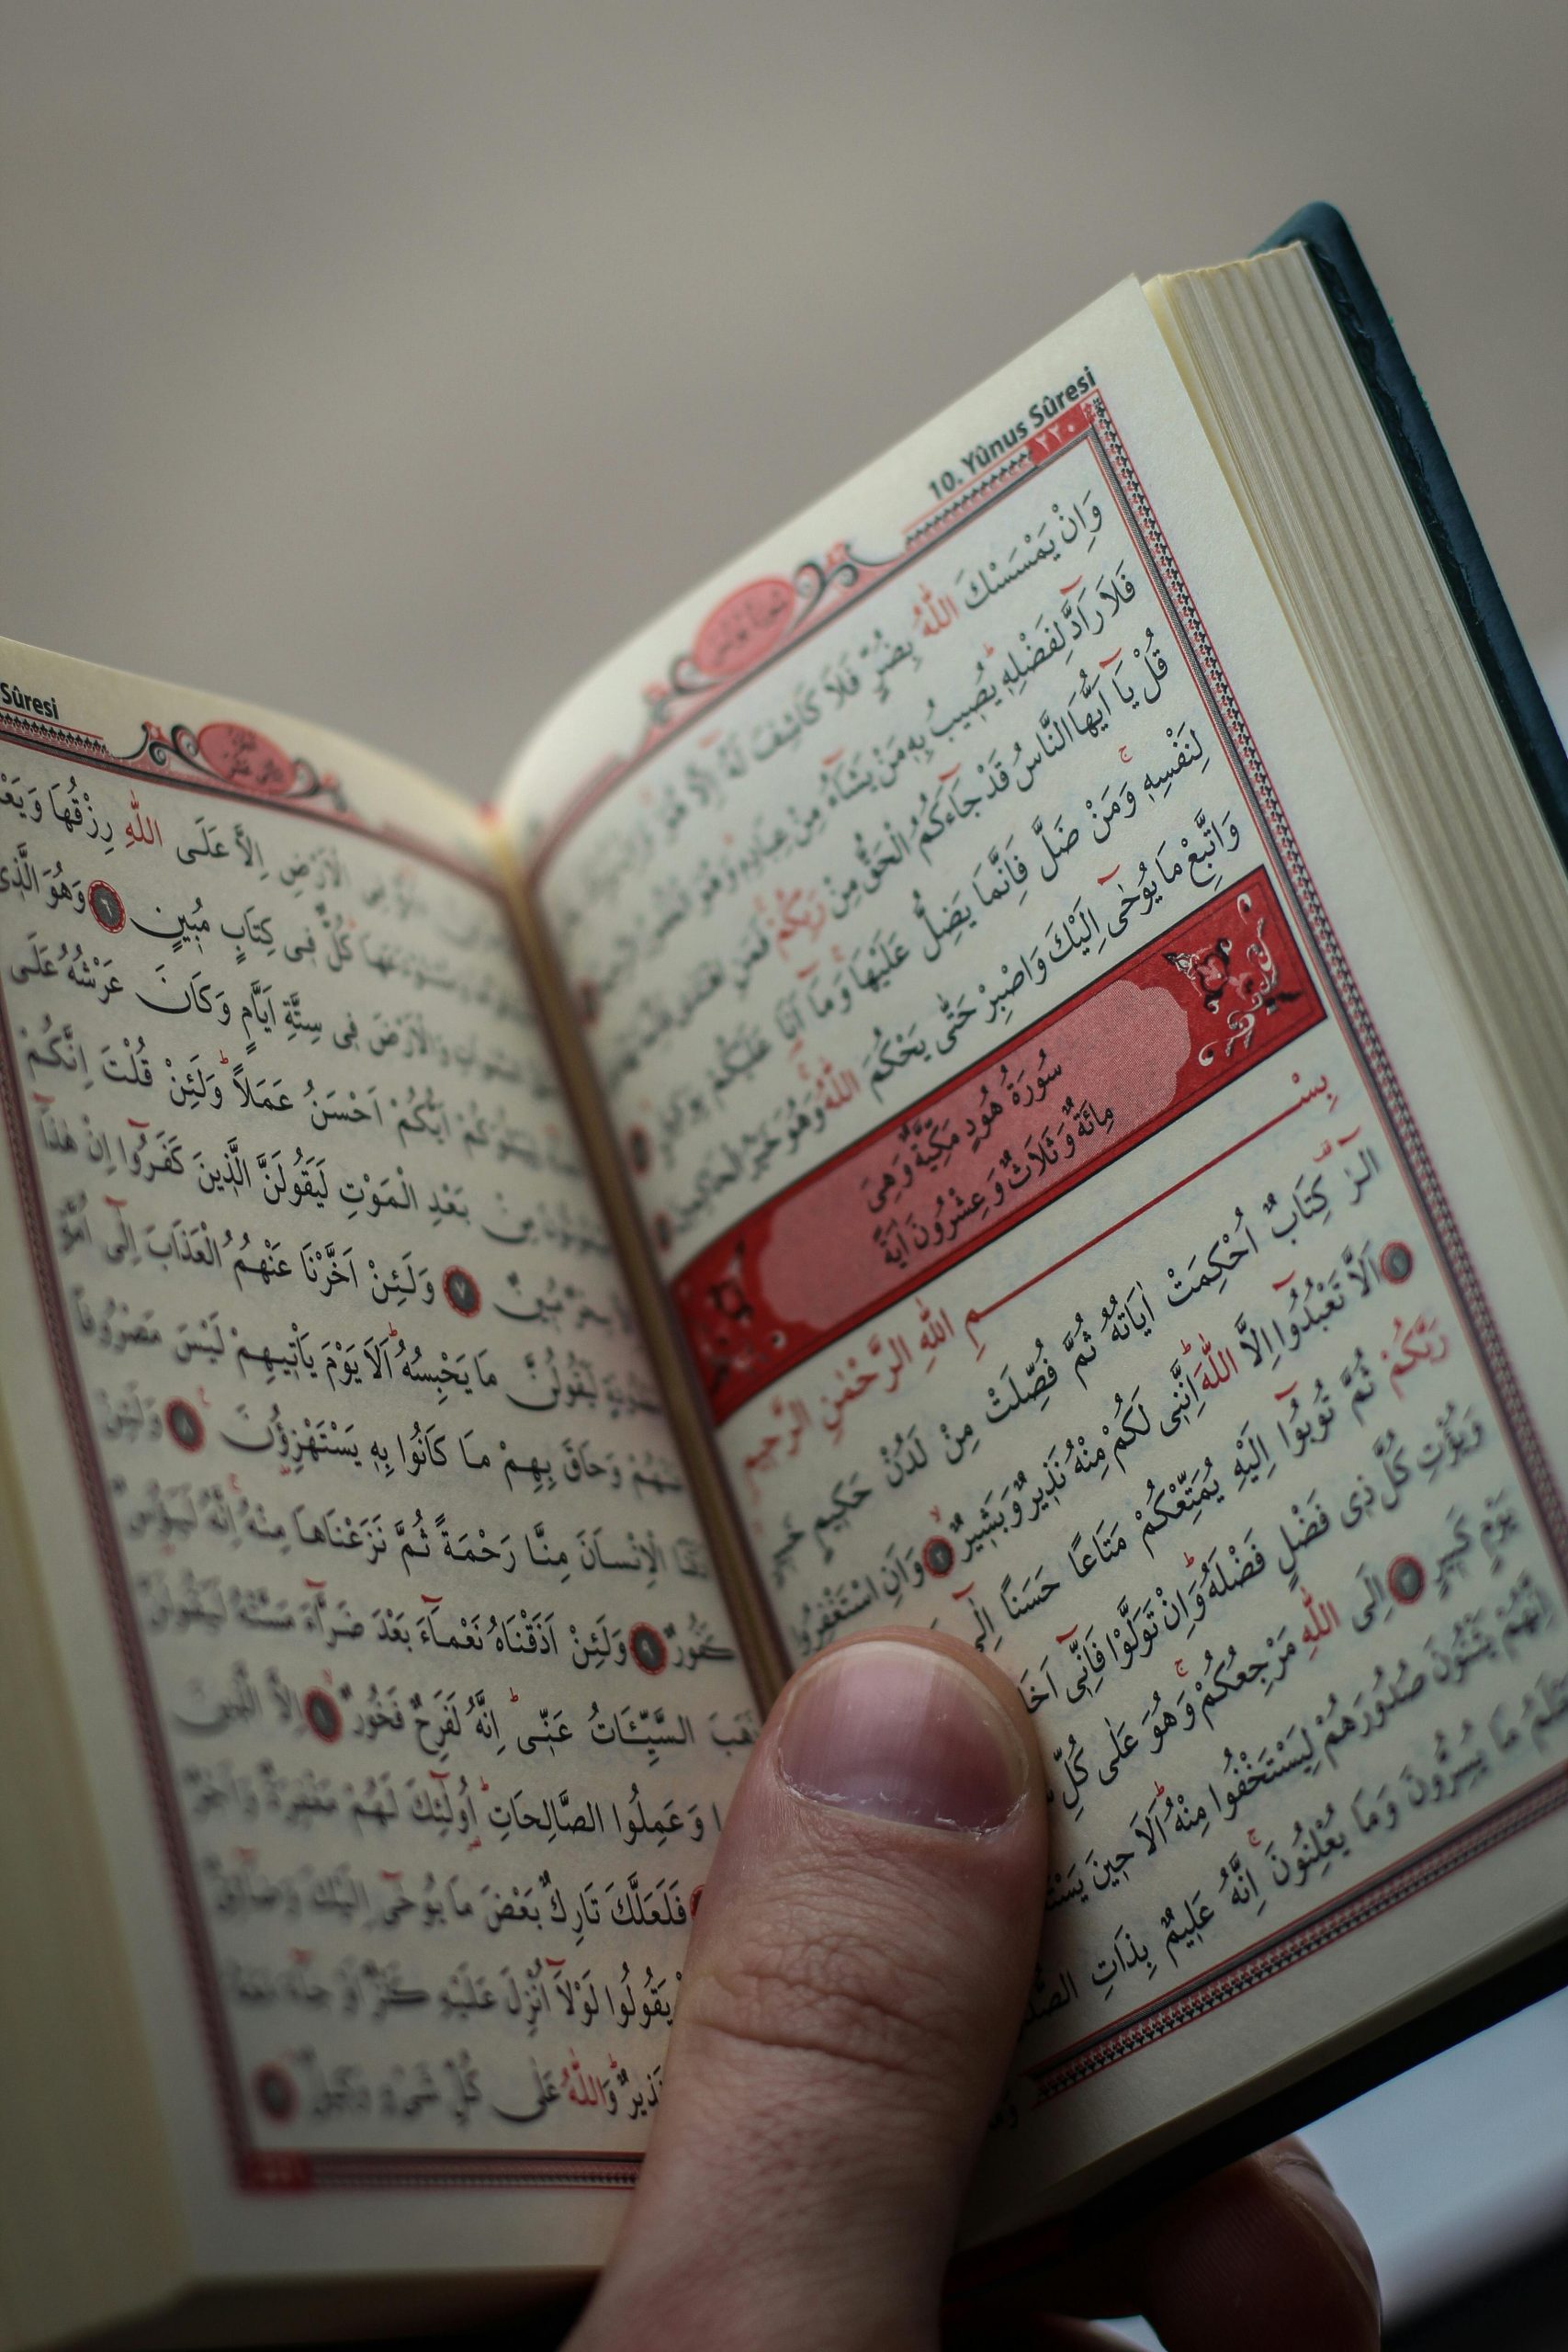 10. Yûnus Sûresi
٢٢٠
وَاِنْ يَمْسَسْكَ اللّٰهُ بِضُرٍّ فَلَا كَاشِفَ لَهُٓ اِلَّا هُوَ
فَلَا رَٓادَّ لِفَضْلِهٖ يُصٖيبُ بِهٖ مَنْ يَشَٓاءُ مِنْ عِبَادِهٖ وَهُوَ
قُلْ يَٓا اَيُّهَا النَّاسُ قَدْ جَٓاءَكُمُ الْحَقُّ مِنْ رَبِّكُمْ فَمَنِ
لِنَفْسِهٖ وَمَنْ ضَلَّ فَاِنَّمَا يَضِلُّ عَلَيْهَا وَمَٓا اَنَا۬ عَلَيْكُمْ بِوَكٖيلٍ
وَاتَّبِعْ مَا يُوحٰٓى اِلَيْكَ وَاصْبِرْ حَتّٰى يَحْكُمَ اللّٰهُ وَهُوَ خَيْرُ الْحَاكِمٖينَ
سُورَةُ هُودٍ مَكِّيَّةٌ وَهِىَ
مِائَةٌ وَثَلَاثٌ وَعِشْرُونَ اٰيَةً
بِسْمِ اللّٰهِ الرَّحْمٰنِ الرَّحٖيمِ
الٓرٰ كِتَابٌ اُحْكِمَتْ اٰيَاتُهُ ثُمَّ فُصِّلَتْ مِنْ لَدُنْ حَكٖيمٍ خَبٖيرٍ
١ اَلَّا تَعْبُدُٓوا اِلَّا اللّٰهَ اِنَّنٖى لَكُمْ مِنْهُ نَذٖيرٌ وَبَشٖيرٌ ٢ وَاَنِ اسْتَغْفِرُوا
رَبَّكُمْ ثُمَّ تُوبُٓوا اِلَيْهِ يُمَتِّعْكُمْ مَتَاعًا حَسَنًا اِلٰٓى
وَيُؤْتِ كُلَّ ذٖى فَضْلٍ فَضْلَهُ وَاِنْ تَوَلَّوْا فَاِنّٖٓى اَخَا
يَوْمٍ كَبٖيرٍ ٣ اِلَى اللّٰهِ مَرْجِعُكُمْ وَهُوَ عَلٰى كُلِّ
اِنَّهُمْ يَثْنُونَ صُدُورَهُمْ لِيَسْتَخْفُوا مِنْهُ اَلَا حٖينَ
مَا يُسِرُّونَ وَمَا يُعْلِنُونَ اِنَّهُ عَلٖيمٌ بِذَاتِ
Sûresi
الْاَرْضِ اِلَّا عَلَى اللّٰهِ رِزْقُهَا
كُلٌّ فٖى كِتَابٍ مُبٖينٍ ٦ وَهُوَ الَّذٖى
وَالْاَرْضَ فٖى سِتَّةِ اَيَّامٍ وَكَانَ عَرْشُهُ عَلَى
اَيُّكُمْ اَحْسَنُ عَمَلًا وَلَئِنْ قُلْتَ اِنَّكُمْ
بَعْدِ الْمَوْتِ لَيَقُولَنَّ الَّذٖينَ كَفَرُٓوا اِنْ هٰذَٓا
مُبٖينٌ ٧ وَلَئِنْ اَخَّرْنَا عَنْهُمُ الْعَذَابَ اِلٰٓى اُمَّةٍ
لَيَقُولُنَّ مَا يَحْبِسُهُ اَلَا يَوْمَ يَاْتٖيهِمْ لَيْسَ مَصْرُوفًا
عَنْهُمْ وَحَاقَ بِهِمْ مَا كَانُوا بِهٖ يَسْتَهْزِؤُنَ ٨ وَلَئِنْ
الْاِنْسَانَ مِنَّا رَحْمَةً ثُمَّ نَزَعْنَاهَا مِنْهُ اِنَّهُ لَيَؤُسٌ
كَفُورٌ ٩ وَلَئِنْ اَذَقْنَاهُ نَعْمَٓاءَ بَعْدَ ضَرَّٓاءَ مَسَّتْهُ لَيَقُولَنَّ
ذَهَبَ السَّيِّـَٔاتُ عَنّٖى اِنَّهُ لَفَرِحٌ فَخُورٌ ١٠ اِلَّا الَّذٖينَ
وَعَمِلُوا الصَّالِحَاتِ اُولٰٓئِكَ لَهُمْ مَغْفِرَةٌ وَاَجْرٌ
فَلَعَلَّكَ تَارِكٌ بَعْضَ مَا يُوحٰٓى اِلَيْكَ وَضَٓائِقٌ
يَقُولُوا لَوْلَٓا اُنْزِلَ عَلَيْهِ كَنْزٌ اَوْ جَٓاءَ مَعَهُ
نَذٖيرٌ وَاللّٰهُ عَلٰى كُلِّ شَىْءٍ وَكٖيلٌ